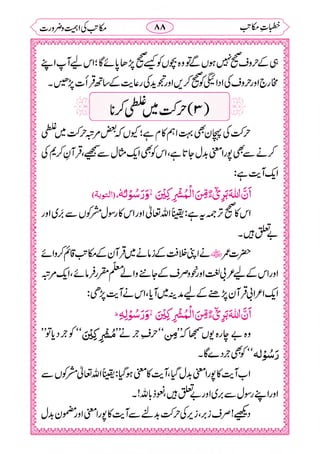 خطباتِ مکاتب ۸۸ مکاتب کی اہمیت وضرورت
ہی کے حروف صحیح نہیں ہوں گے تو وہ بچوں کو کیسے صحیح پڑھا پائے گا؛ اس لیے آپ اپنے
مخارج اور حروف کی ادائیگی کو صحیح کریں اور تجوید کی رعایت کے ساتھ قرأت پڑھیں۔
(۳) حرکت میں غلطی کرنا
حرکت کی پہچان بھی بہت اہم کام ہے؛ کیوں کہ بعض مرتبہ حرکت میں غلطی
کرنے سے بھی پورا معنیٰ بدل جاتا ہے، اس کو بھی ایک مثال سے سمجھیے، قرآنِ کریم کی
ایک آیت ہے:
اَنَّ اللّٰهَ بَرِیْٓءٌ مِّنَ الْمُشْرِکِیْنَ ۙ وَرَسُوْلُهٗ۔ (التوبة)
اس کا صحیح ترجمہ یہ ہے: یقیناً اللہ تعالیٰ اور اس کا رسول مشرکوں سے بری اور
بے تعلق ہیں۔
حضرت عمرؓ نے اپنی خلافت کے زمانے میں قرآن کے مکاتب قائم کروائے
اور اس کے لیے عربی لغت اور نحو وصرف کے جاننے والے معلم مقرر فرمائے، ایک مرتبہ
ایک اعرابی قرآن پڑھنے کے لیے مدینہ میں آیا، اس نے آیت پڑھی:
اَنَّ اللّٰهَ بَرِیْٓءٌ مِّنَ الْمُشْرِکِیْنَ ۙ وَرَسُوْلِهٖ۔
وہ بے چارہ یوں سمجھا کہ ”مِنَ“ حرفِ جر نے ”مُشْرِکِیْنَ“ کو جر دیا تو ”وَ
رَسُوْلِهٖ“ کو بھی جر دے گا۔
اب آیت کا پورا معنیٰ بدل گیا، آیت کا معنیٰ ہو گیا: یقیناً اللہ تعالیٰ مشرکوں سے
اور اپنے رسول سے بری اور بے تعلق ہیں، نعوذ باللہ!۔
دیکھیے! صرف زبر، زیر کی حرکت بدلنے سے آیت کا پورا معنیٰ اور مضمون بدل